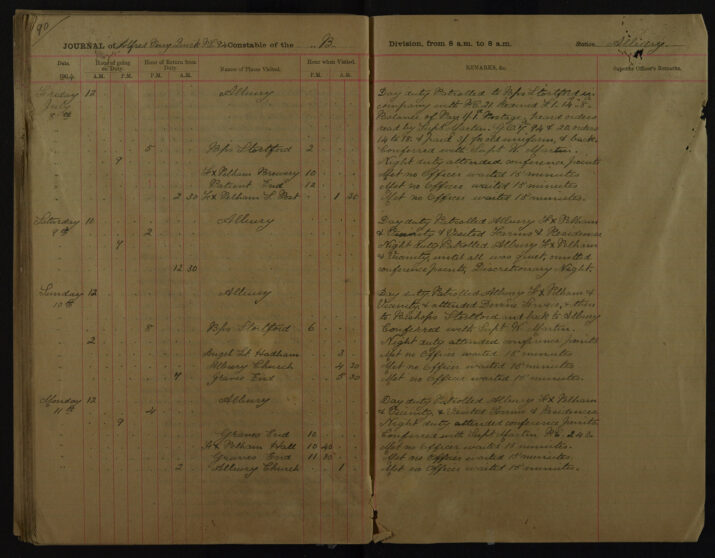 190
JOURNAL of Alfred Percy Quick P.C. 84 Constable of the B. Division, from 8 a.m. to 8 a.m. Station Albury
Date. Hour of going on Duty. Hour of Return from Duty. Names of Places Visited. Hour when Visited. REMARKS, &c. Superior Officer's Remarks.
1904 A.M. P.M. A.M. P.M. P.M. A.M.
Friday 12 Albury Day duty Patrolled to B/ps Stortford in
July company with P.C. 21
8th Balance of Pay Postage, heard orders
read by Supt. Martin
& back
5 B/ps Stortford 2 Conferred with Supt W. Martin.
9 Night duty attended conference points
Fx Pelham Brewery 10 Met no Officer waited 15 minutes
Patient End 12 Met no Officer waited 15 minutes
2 30 Fx Pelham S. Post 1 30 Met no Officer waited 15 minutes.
Saturday 11 Albury Day duty Patrolled Albury Fx Pelham
9th 2 & Vicinity & Visited Farms & Residences
9 Night duty Patrolled Albury Fx Pelham
& Vicinity, until all was quiet, omitted
12 30 conference points, Discretionary Night.
Sunday 12 Albury Day duty Patrolled Albury Fx Pelham &
10th Vicinity, & attended Divine Service, & then
to Bishops Stortford and back to Albury
8 B/ps Stortford 6 Conferred with Supt W. Martin.
2 Night duty attended conference points
Angel Lt Hadham 3 Met no Officer waited 15 minutes
Albury Church 4 30 Met no Officer waited 15 minutes.
7 Graves End 5 30 Met no Officer waited 15 minutes.
Monday 12 Albury Day duty Patrolled Albury Fx Pelham
11th 4 & Vicinity, & Visited Farms & Residences
9 Night duty attended conference points
Graves End 10 Conferred with Supt Martin
Fx Pelham Hall 10 40 Met no Officer waited 15 minutes.
Graves End 11 30 Met no Officer waited 15 minutes.
2 Albury Church 1 Met no Officer waited 15 minutes.